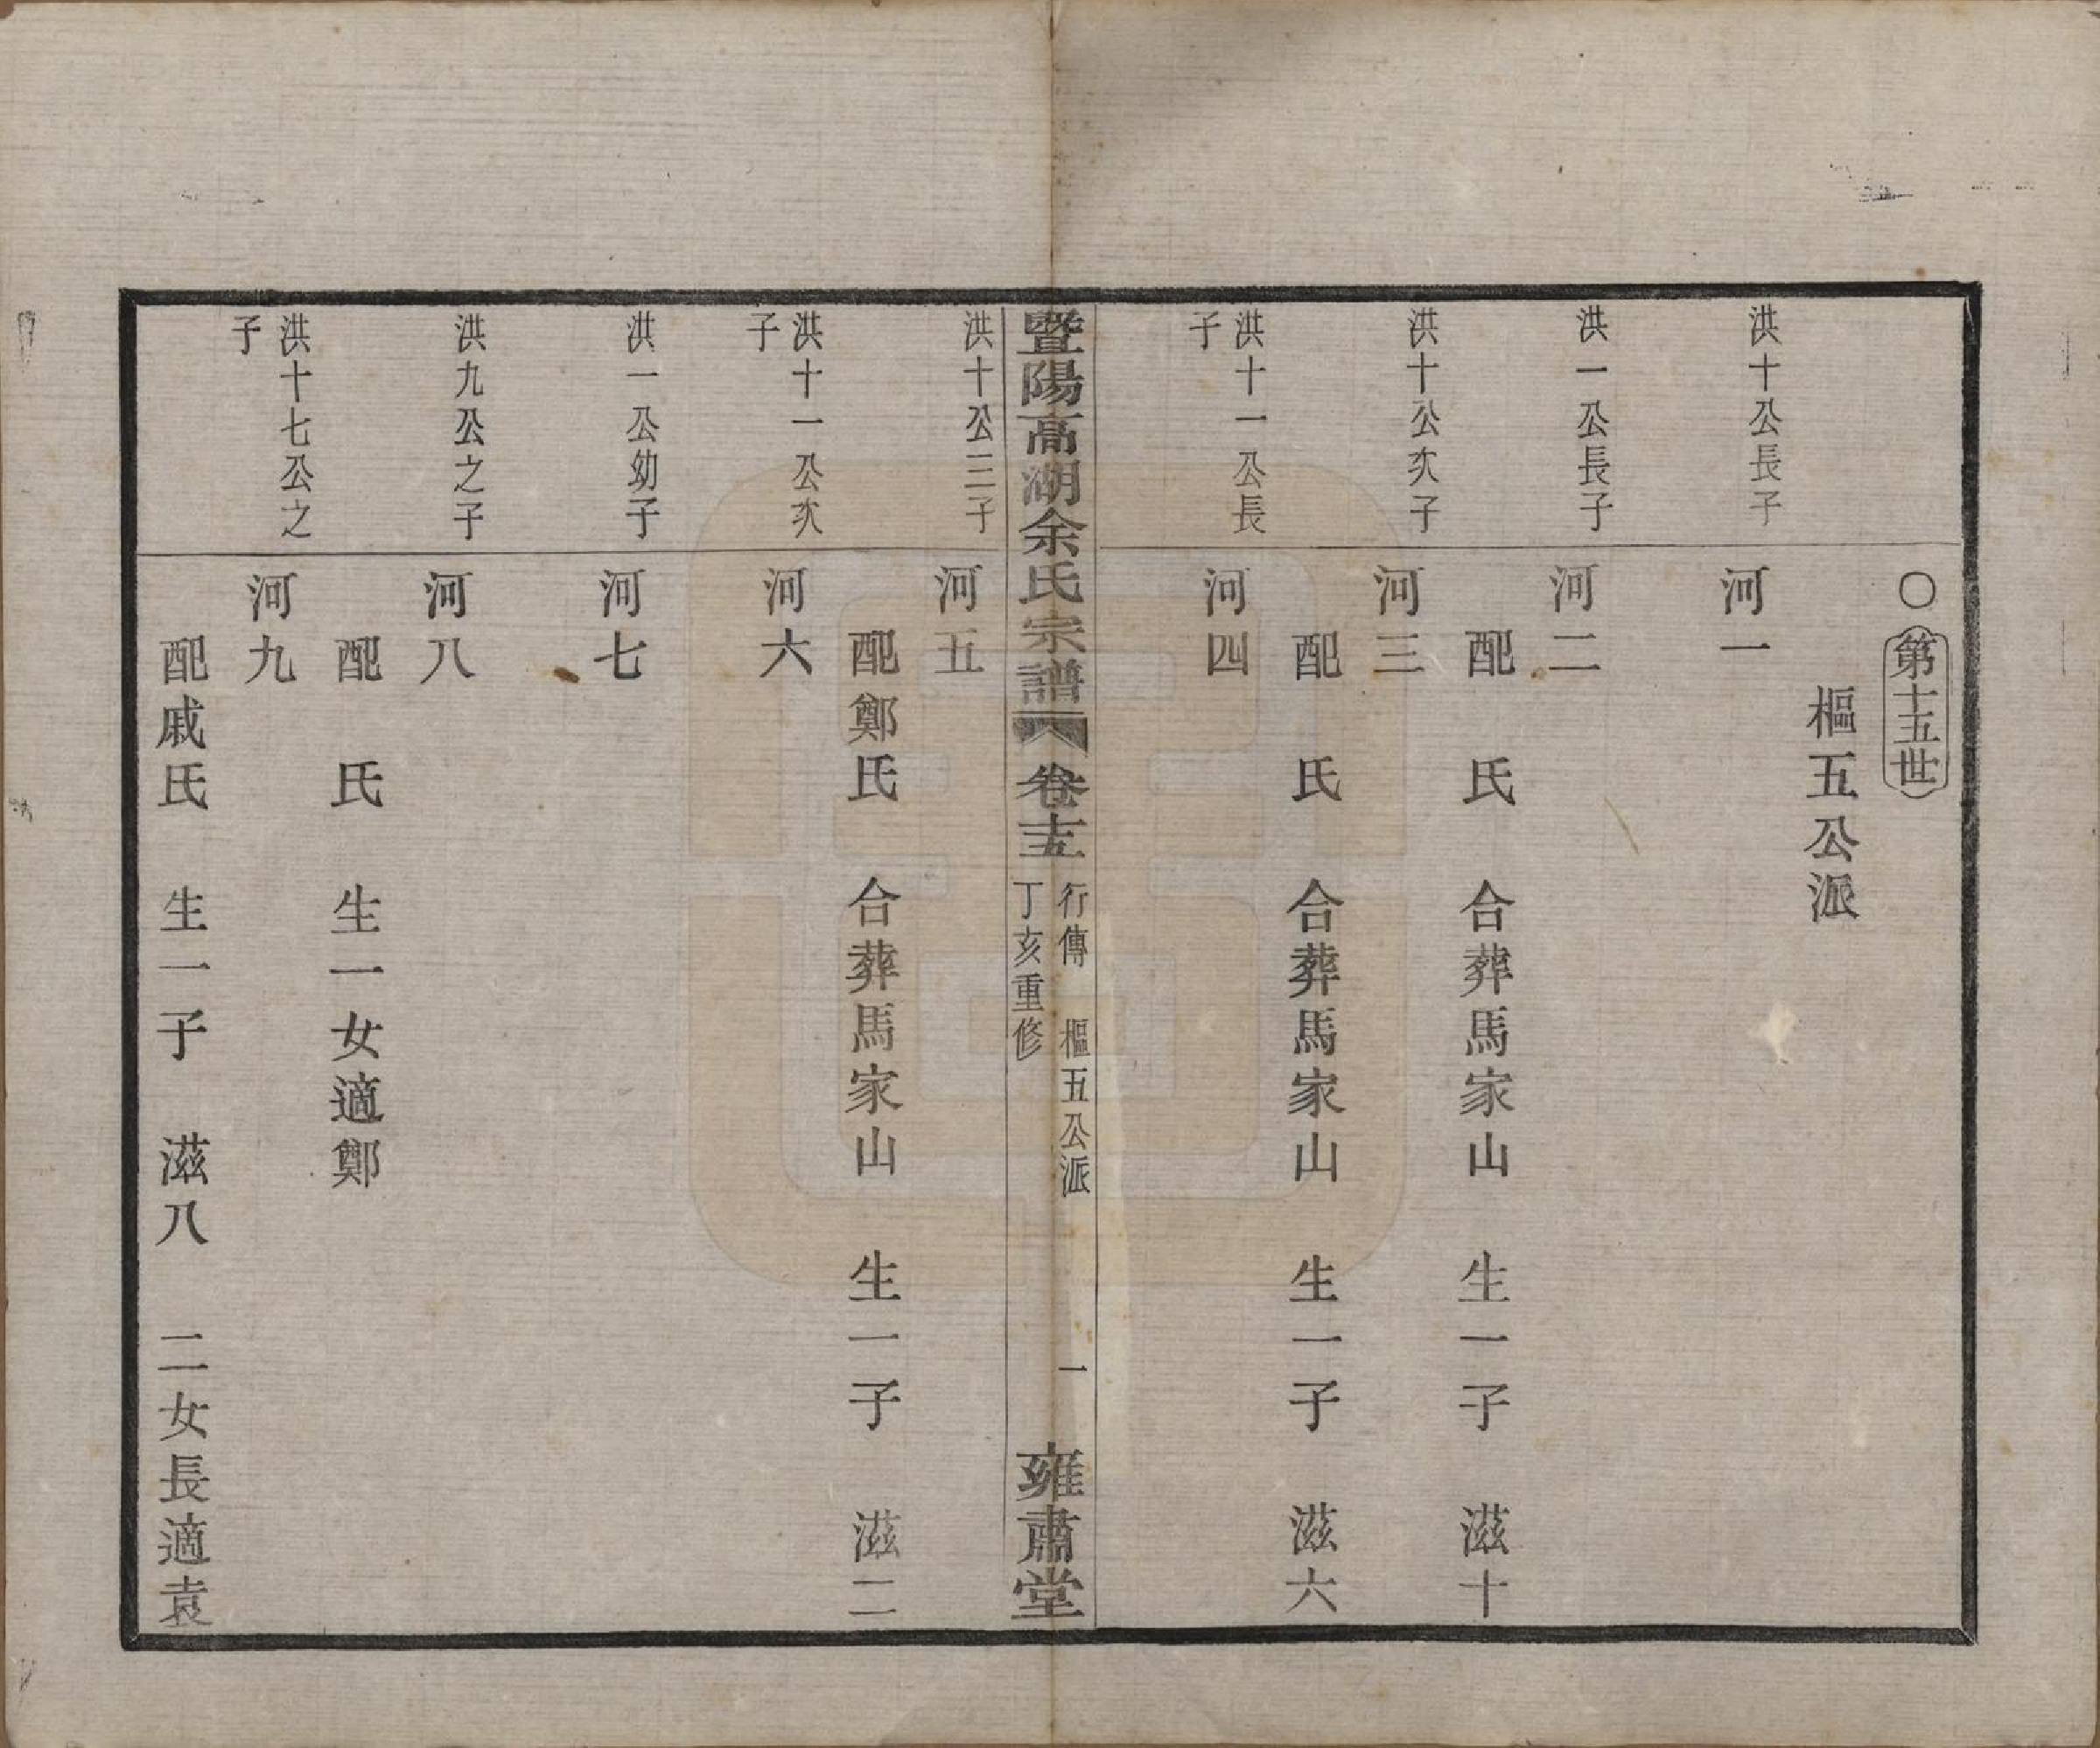 〇第十五世
樞五公派
洪十公長子
河一
洪一公長子
河二
配　氏　合葬馬家山　生一子　滋十
洪十公次子
河三
配　氏　合葬馬家山　生一子　滋六
洪十一公長
子
河四
暨陽高湖余氏宗譜　卷十五　行傳　樞五公派　一　雍肅堂
丁亥重修
洪十公三子
河五
配鄭氏　合葬馬家山　生一子　滋二
洪十一公次
子
河六
洪一公幼子
河七
洪九公之子
河八
配　氏　生一女適鄭
洪十七公之
子
河九
配戚氏　生一子　滋八　二女長適袁